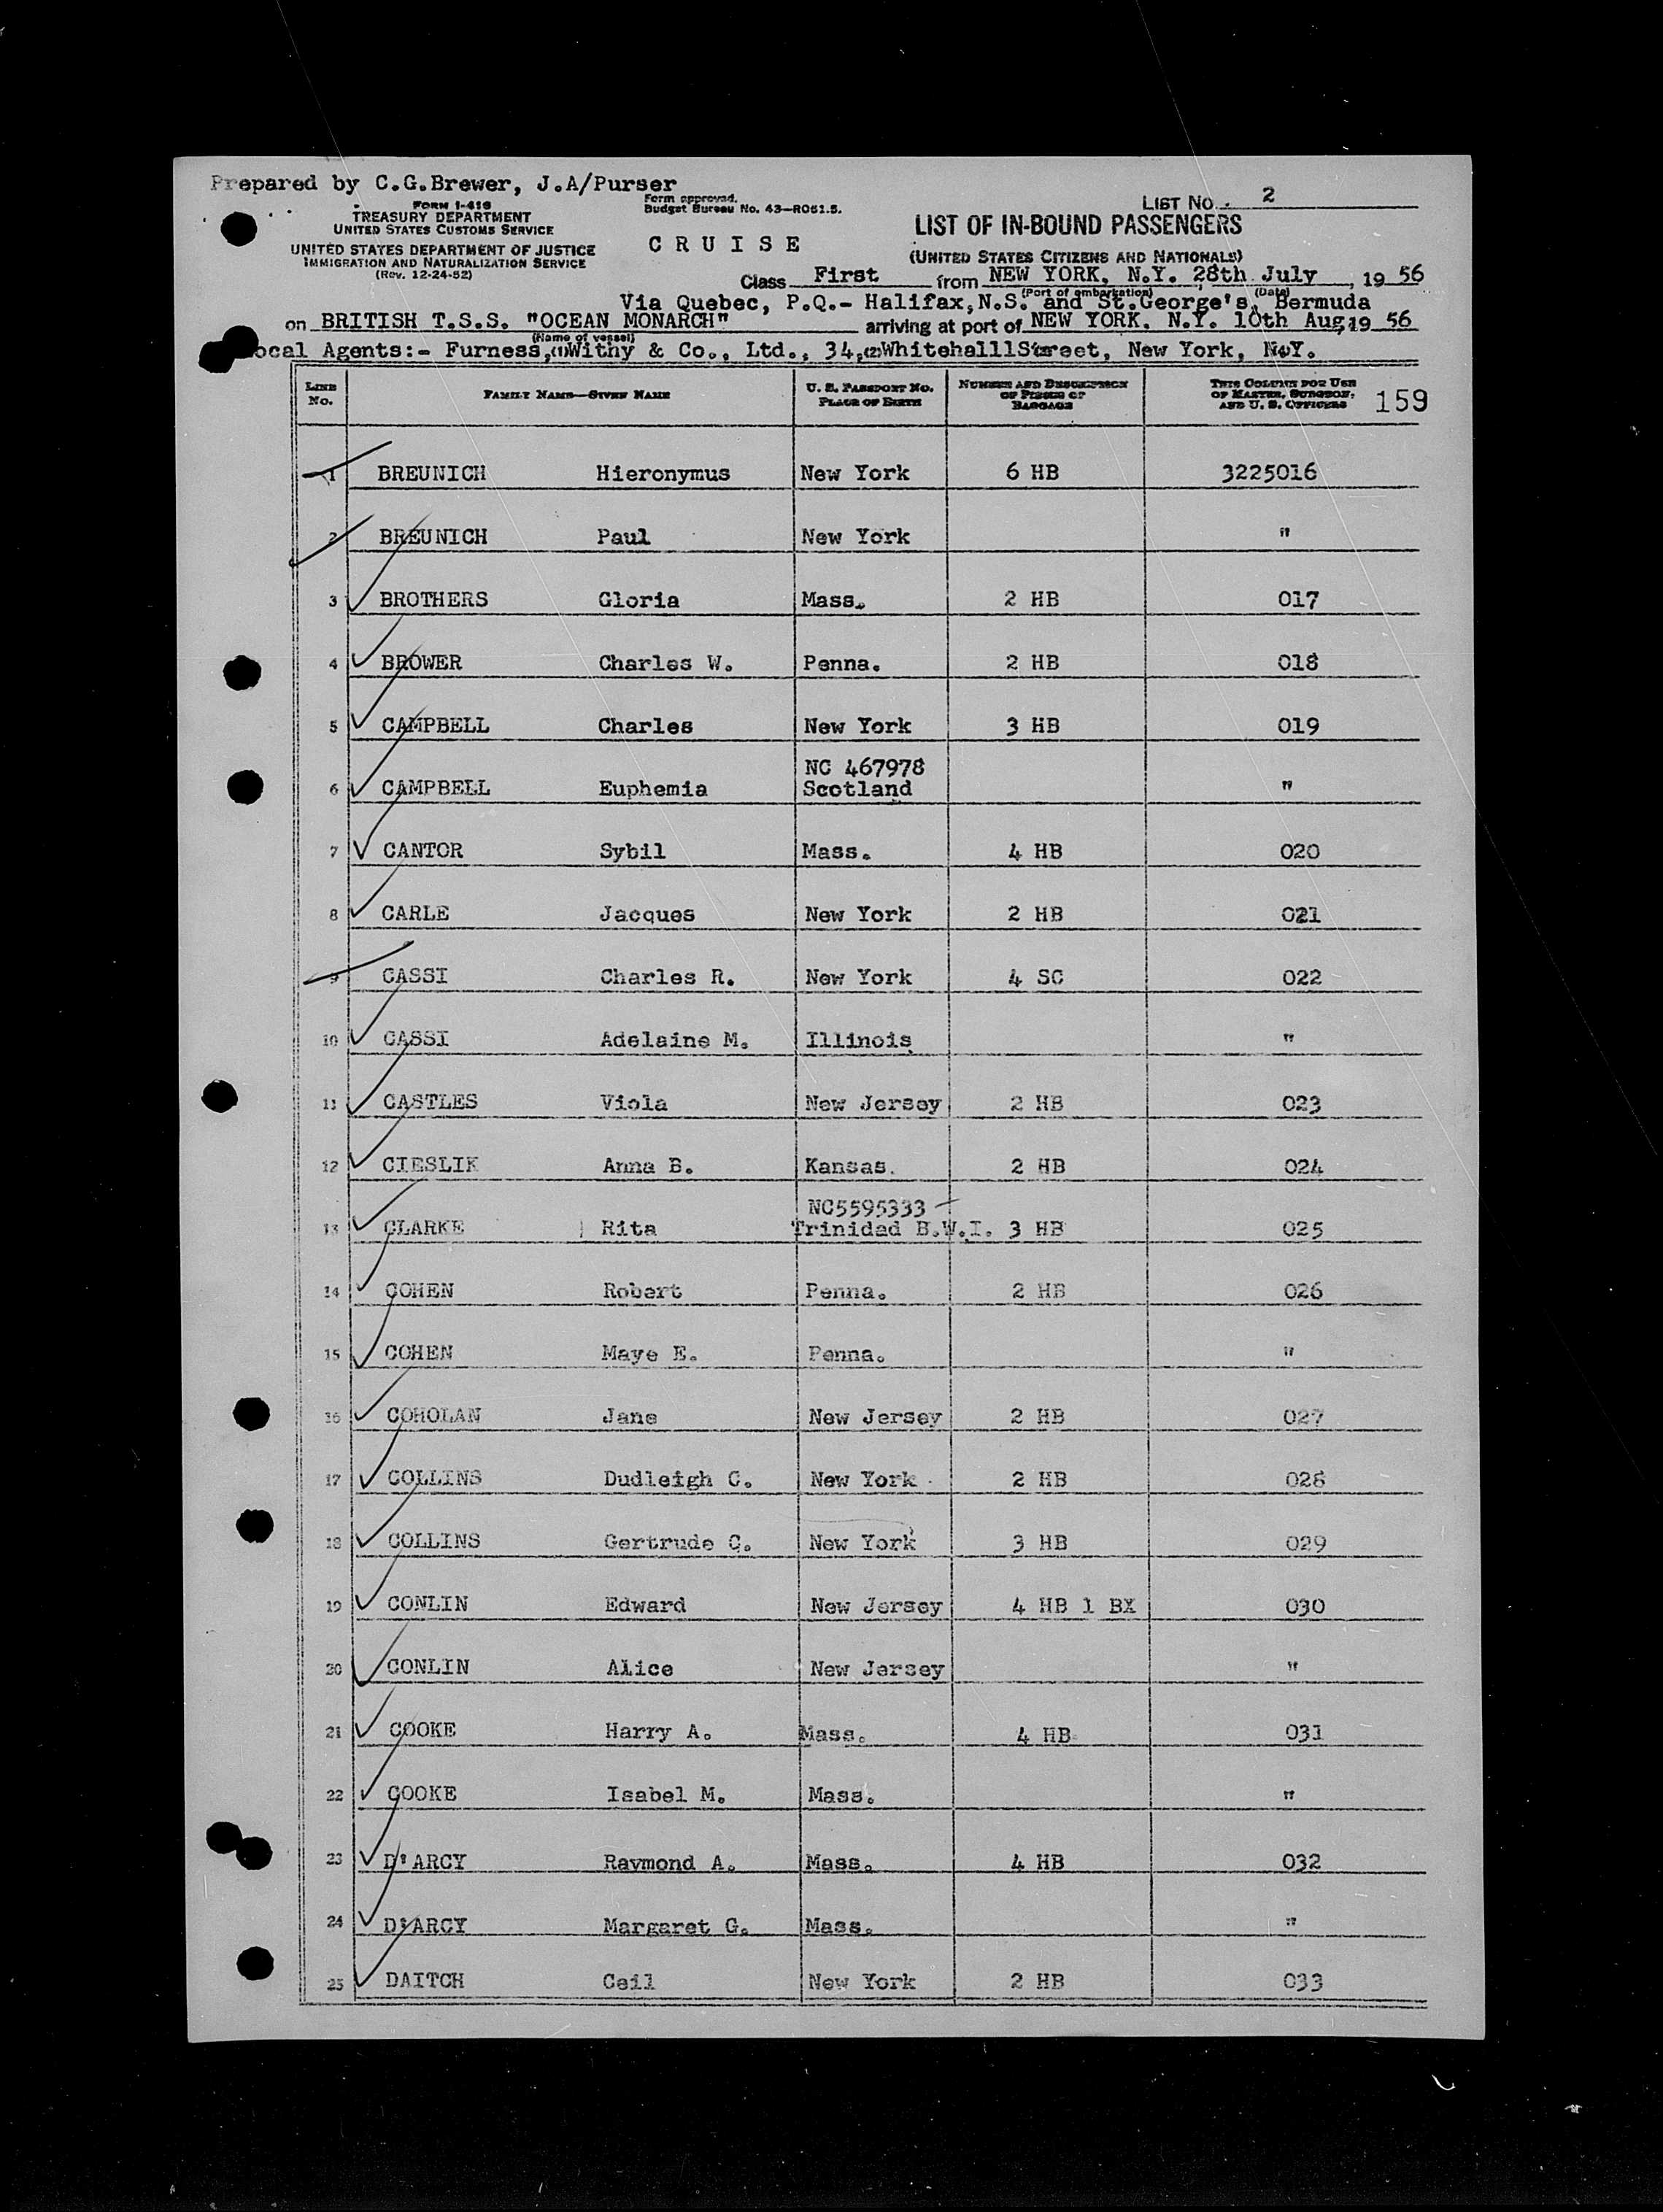 Prepared by C.G.Brewer, J.A/Purser
FORM I-418
TREASURY DEPARTMENT
UNITED STATES CUSTOMS SERVICE
UNITED STATES DEPARTMENT OF JUSTICE
IMMIGRATION AND NATURALIZATION SERVICE
(Rev. 12-24-52)
Form approved.
Budget Bureau No. 43—R051.5.
C R U I S E
LIST No. 2
LIST OF IN-BOUND PASSENGERS
(UNITED STATES CITIZENS AND NATIONALS)
Class First from NEW YORK, N.Y. 28th July, 19 56
(Port of embarkation) (Date)
Via Quebec, P.Q.- Halifax,N.S. and St.George's, Bermuda
on BRITISH T.S.S. "OCEAN MONARCH" arriving at port of NEW YORK. N.Y. 10th Aug, 19 56
(Name of vessel)
Local Agents:- Furness, Withy & Co., Ltd., 34, Whitehall Street, New York, N.Y.
(1) (2)
LINE No. FAMILY NAME—GIVEN NAME U. S. PASSPORT NO. PLACE OF BIRTH NUMBER AND DESCRIPTION OF PIECES OF BAGGAGE THIS COLUMN FOR USE OF MASTER, SURGEON, AND U. S. OFFICERS 159
1 BREUNICH Hieronymus New York 6 HB 3225016
2 BREUNICH Paul New York "
3 BROTHERS Gloria Mass. 2 HB 017
4 BROWER Charles W. Penna. 2 HB 018
5 CAMPBELL Charles New York 3 HB 019
NC 467978
6 CAMPBELL Euphemia Scotland "
7 CANTOR Sybil Mass. 4 HB 020
8 CARLE Jacques New York 2 HB 021
9 CASSI Charles R. New York 4 SC 022
10 CASSI Adelaine M. Illinois "
11 CASTLES Viola New Jersey 2 HB 023
12 CIESLIK Anna B. Kansas. 2 HB 024
NC5595333
13 CLARKE Rita Trinidad B.W.I. 3 HB 025
14 COHEN Robert Penna. 2 HB 026
15 COHEN Maye E. Penna. "
16 COHOLAN Jane New Jersey 2 HB 027
17 COLLINS Dudleigh C. New York 2 HB 028
18 COLLINS Gertrude C. New York 3 HB 029
19 CONLIN Edward New Jersey 4 HB 1 BX 030
20 CONLIN Alice New Jersey "
21 COOKE Harry A. Mass. 4 HB 031
22 COOKE Isabel M. Mass. "
23 D'ARCY Raymond A. Mass. 4 HB 032
24 D'ARCY Margaret G. Mass. "
25 DAITCH Ceil New York 2 HB 033